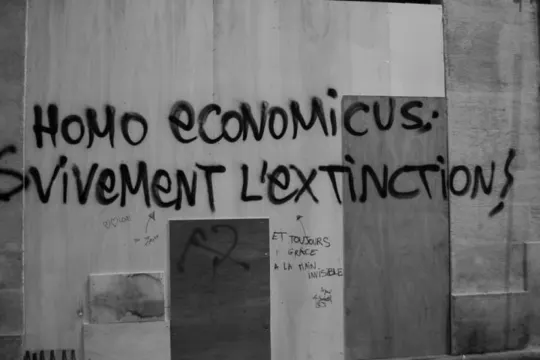 HOMO eCONOMiCUS:
ViVeMENT L'eXTiNCTiON!
ET TOUJOURS
GRÂCE
A LA MAIN
INVISIBLE